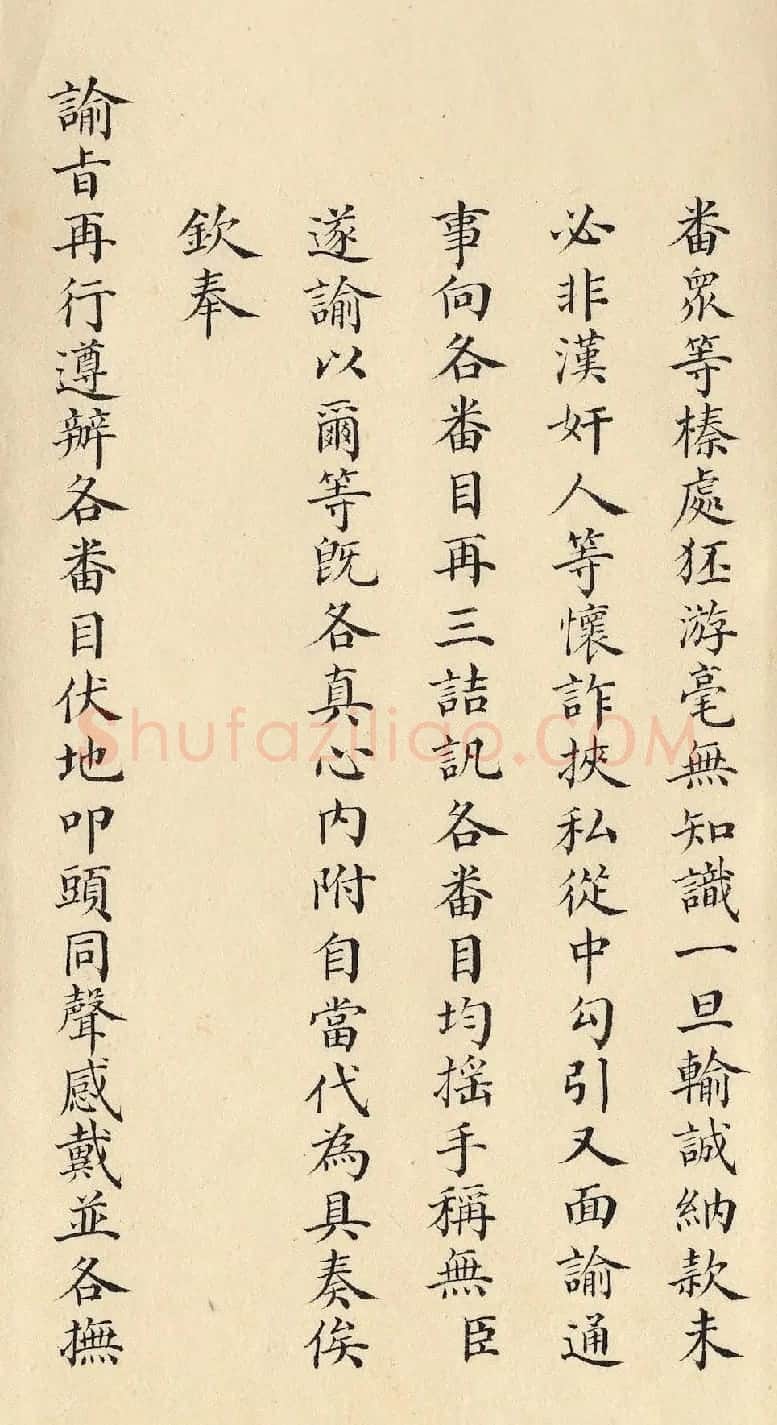 番眾等榛處狉游毫無知識一旦輸誠納款未
必非漢奸人等懷詐挾私從中勾引又面諭通
事向各番目再三詰訊各番目均搖手稱無臣
遂諭以爾等既各真心內附自當代為具奏俟
欽奉
諭旨再行遵辦各番目伏地叩頭同聲感戴並各撫
Shufaziliao.COM